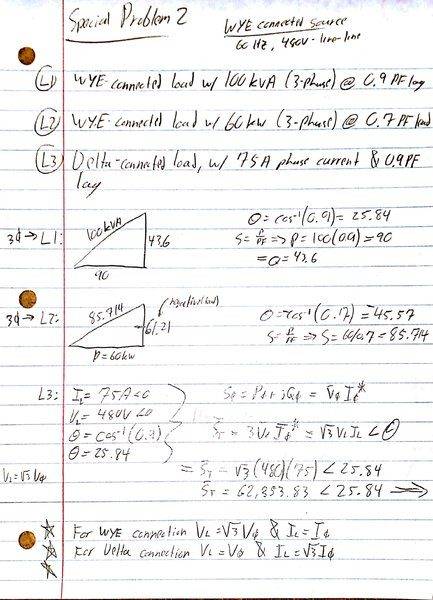 Special Problem 2
WYE connected source
60 Hz, 480V-line-line
L1 WYE-connected load w/ 100 kVA (3-phase) @ 0.9 PF lag
L2 WYE-connected load w/ 60 kW (3-phase) @ 0.7 PF lead
L3 Delta-connected load, w/ 75A phase current & 0.9 PF
lag
3ϕ → L1: 100 kVA 43.6 90
θ = cos⁻¹(0.9) = 25.84
S = P/PF ⇒ P = 100(0.9) = 90
= Q = 43.6
3ϕ → L2: 85.714 61.21 P = 60kW
θ = cos⁻¹(0.7) = -45.57
S = P/PF ⇒ S = 60/0.7 = 85.714
L3: IL = 75A<0
VL = 480V<0
θ = cos⁻¹(0.9)
θ = 25.84
Sϕ = Pϕ + jQϕ = V̄ϕ Īϕ*
S̄T = 3V̄ϕ Īϕ* = √3 VL IL <θ
VL = √3 Vϕ
= S̄T = √3 (480)(75) < 25.84
S̄T = 62,353.83 < 25.84 →
For WYE connection VL = √3 Vϕ & IL = Iϕ
For Delta connection VL = Vϕ & IL = √3 Iϕ